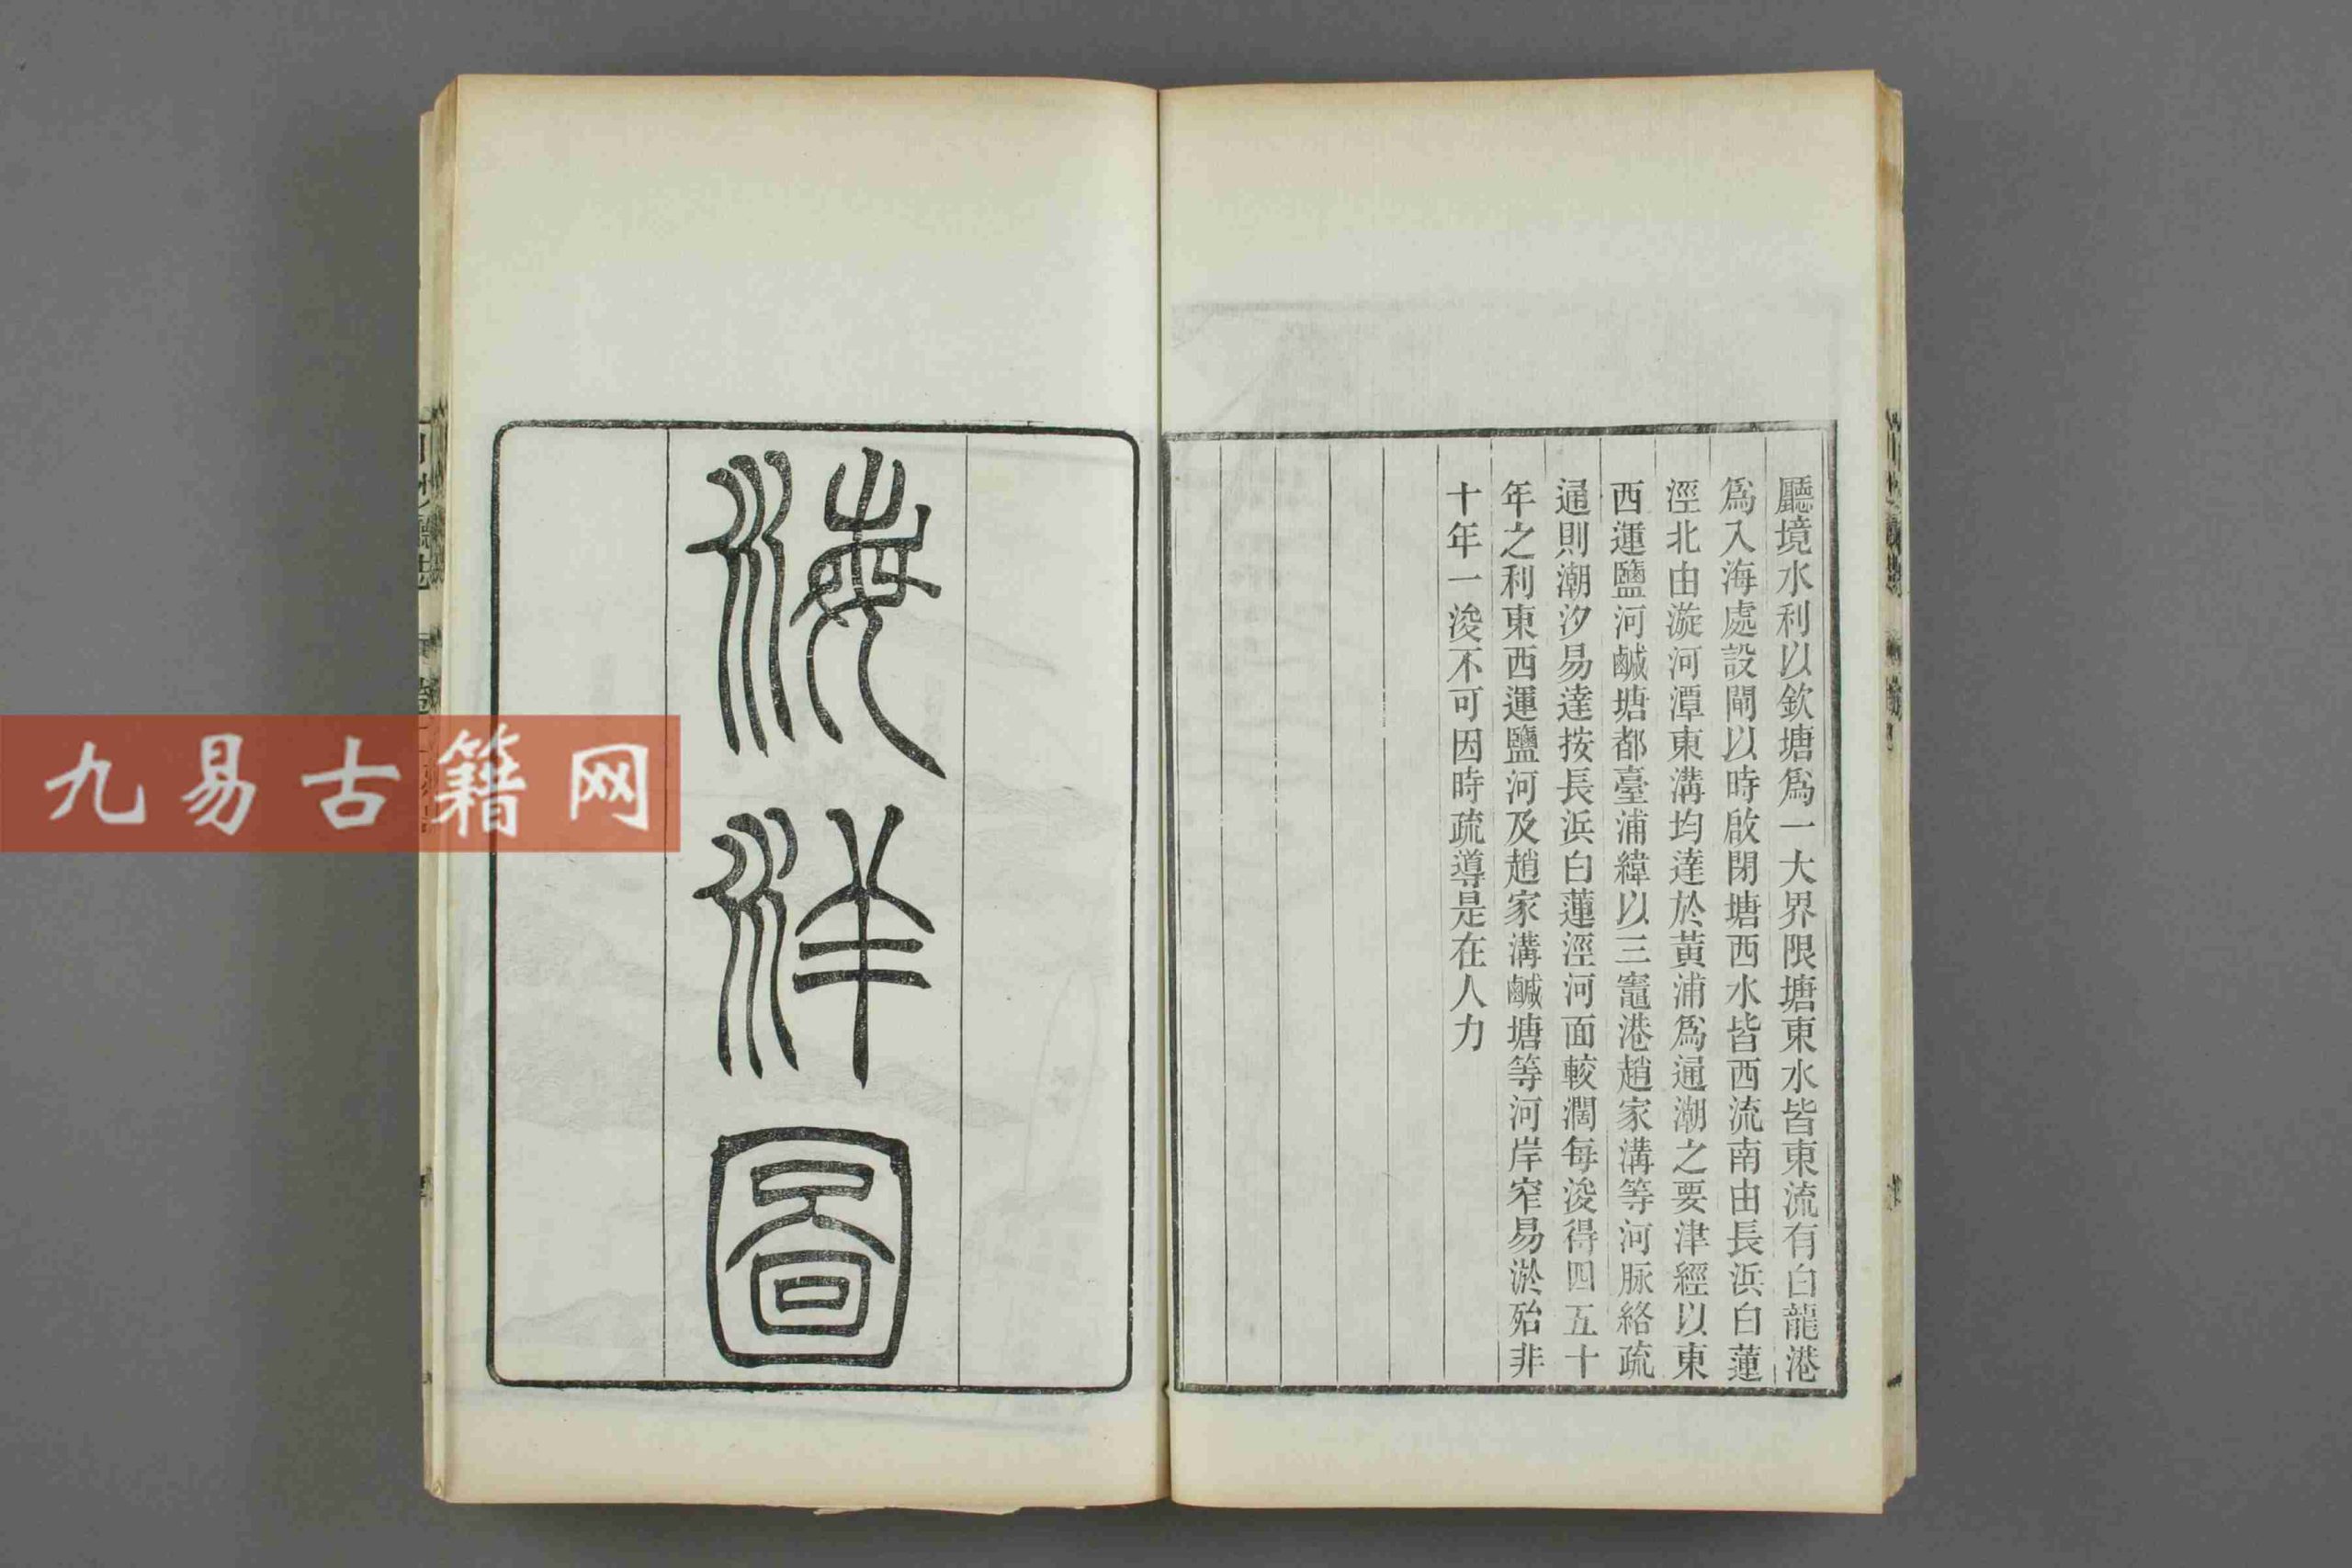 廳境水利以欽塘爲一大界限塘東水皆東流有白龍港
爲入海處設閘以時啟閉塘西水皆西流南由長浜白蓮
涇北由漩河潭東溝均達於黃浦爲通潮之要津經以東
西運鹽河鹹塘都臺浦緯以三竈港趙家溝等河脈絡疏
通則潮汐易達按長浜白蓮涇河面較濶每浚得四五十
年之利東西運鹽河及趙家溝鹹塘等河岸窄易淤殆非
十年一浚不可因時疏導是在人力
海洋圖
九易古籍网